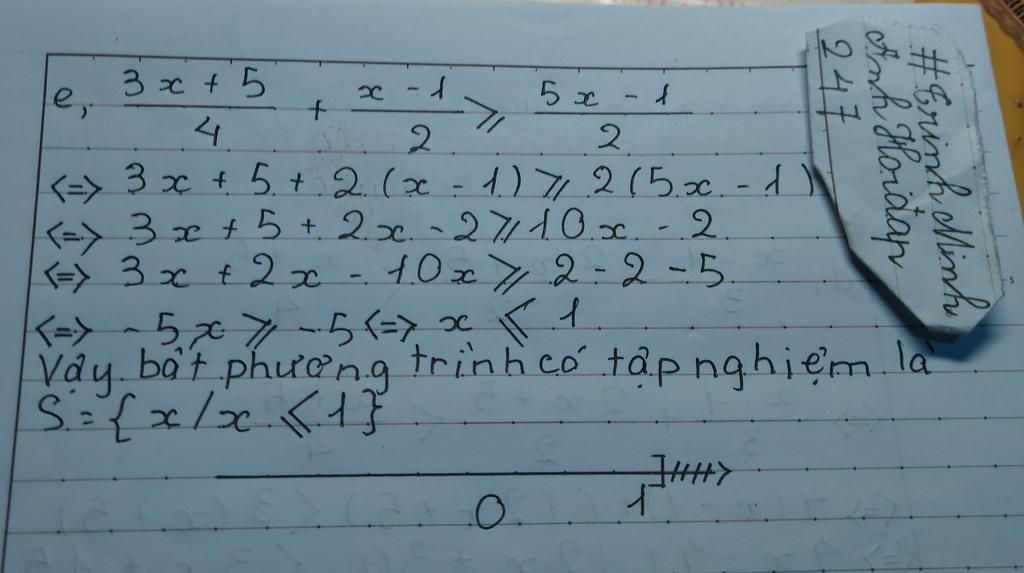 e, (3x + 5)/4 + (x - 1)/2 ⩾ (5x - 1)/2
<=> 3x + 5 + 2(x - 1) ⩾ 2(5x - 1)
<=> 3x + 5 + 2x - 2 ⩾ 10x - 2
<=> 3x + 2x - 10x ⩾ 2 - 2 - 5
<=> -5x ⩾ -5 <=> x ⩽ 1
Vậy bất phương trình có tập nghiệm là
S = {x/x ⩽ 1}
0 1
#Erinh Minh
Anh Hoidap
247